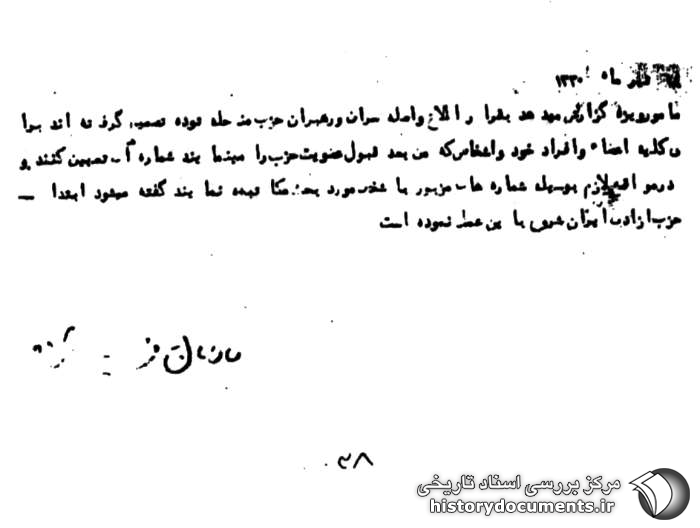 ماه ۱۳۳۰
مامور ویژه گزارش میدهد بقرار اطلاع واصله سران و رهبران حزب منحله توده تصمیم گرفته اند برا
ی کلیه اعضاء و افراد خود و اشخاص که من بعد قبول عضویت حزب را مینمایند شماره تعیین کنند و
در مواقع لازم بوسیله شماره های مزبور با عضو مورد بحث مکاتبه نمایند گفته میشود ابتدا —
حزب ازادی ایران شروع باین عمل نموده است
۳۸
مرکز بررسی اسناد تاریخی
historydocuments.ir